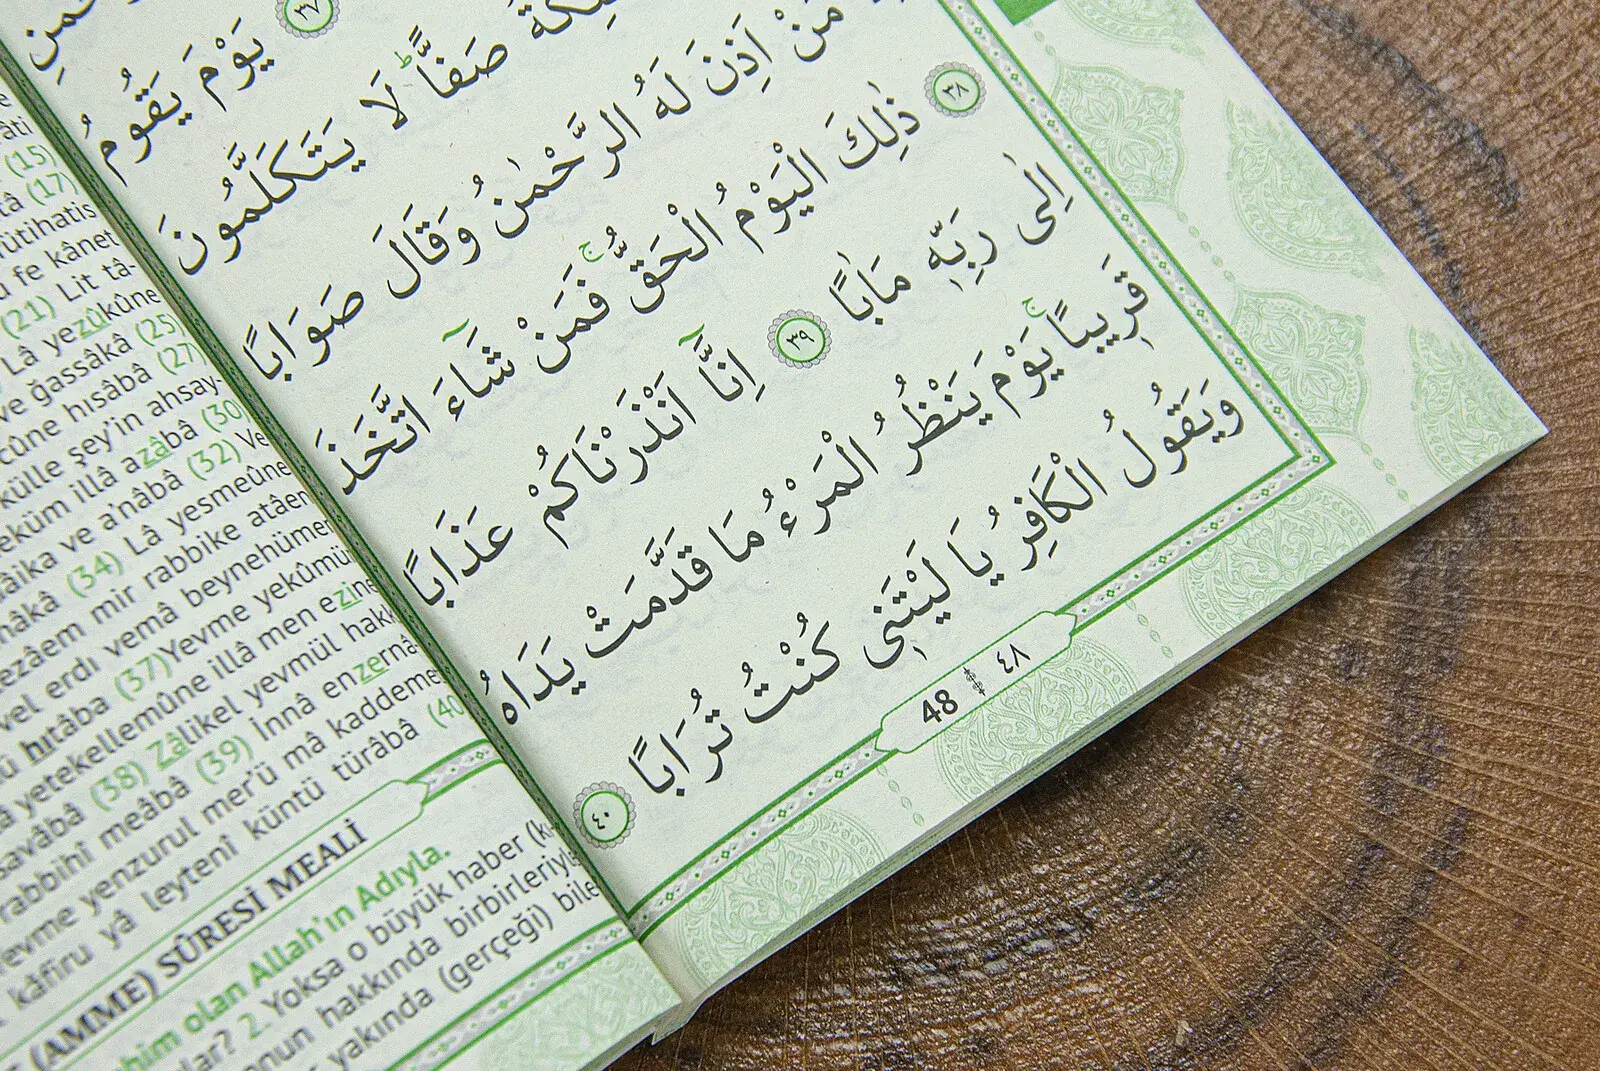 ٣٧ يَوْمَ يَقُومُ
صَفًّاۜ لَا يَتَكَلَّمُونَ
مَنْ اَذِنَ لَهُ الرَّحْمٰنُ وَقَالَ صَوَابًا
٣٨ ذٰلِكَ الْيَوْمُ الْحَقُّۚ فَمَنْ شَٓاءَ اتَّخَذَ
اِلٰى رَبِّهٖ مَاٰبًا ٣٩ اِنَّٓا اَنْذَرْنَاكُمْ عَذَابًا
قَرٖيبًاۚ يَوْمَ يَنْظُرُ الْمَرْءُ مَا قَدَّمَتْ يَدَاهُ
وَيَقُولُ الْكَافِرُ يَا لَيْتَنٖى كُنْتُ تُرَابًا ٤٠
48 ٤٨
(15)
tâ (17)
fütihatis
fe kânet
(21) Lit tâ-
Lâ yezûkûne
ve ğassâkâ (25)
cûne hısâbâ (27)
külle şey'in ahsay-
illâ azâbâ (30)
ve a'nâbâ (32) Ve
(34) Lâ yesmeûne
mir rabbike atâen
vel erdı vemâ beynehümer
hıtâba (37) Yevme yekûmür
yetekellemûne illâ men ezine
savâbâ (38) Zâlikel yevmül hakk
rabbihî meâbâ (39) İnnâ enzernâ
yevme yenzurul mer'ü mâ kaddeme
kâfiru yâ leytenî küntü türâbâ (40)
(AMME) SÛRESİ MEALİ
olan Allah'ın Adıyla.
2. Yoksa o büyük haber (kı-
hakkında birbirleriyle
yakında (gerçeği) bile